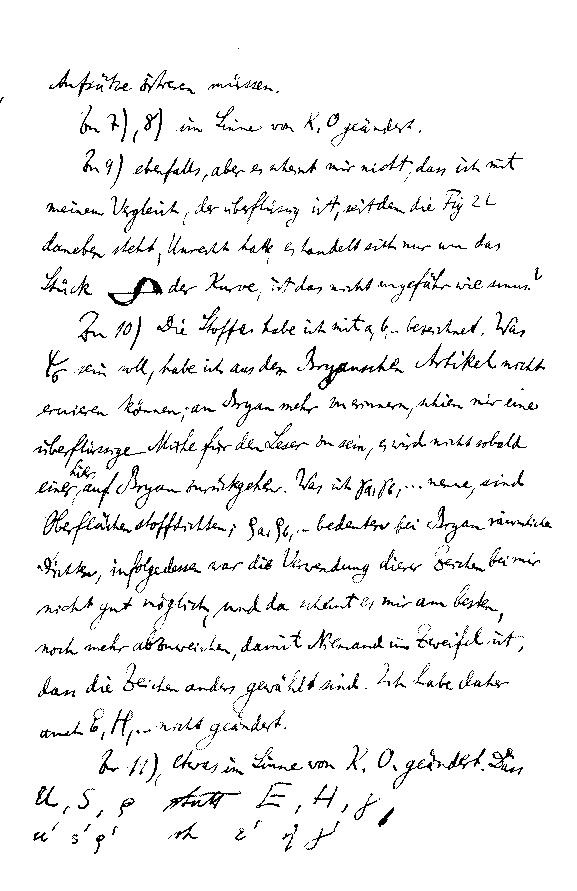 Aufsätze hörren müssen.
Zu 7), 8) im Sinne von K. O. geändert.
Zu 9) ebenfalls, aber es scheint mir nicht, dass ich mit
meinem Vergleich, der überflüssig ist, seitdem die Fig 2
daneben steht, Unrecht hatte, es handelt sich nur um das
Stück der Kurve, ist das nicht ungefähr wie sinus?
Zu 10) Die Stoffe habe ich mit a, b, .. bezeichnet. Was
sein soll, habe ich aus dem Bryanschen Artikel nicht
eruieren können; an Bryan mehr zu erinnern, schien mir eine
überflüssige Mühe für den Leser zu sein, es wird nicht sobald
einer hier auf Bryan zurückgehen. Was ich ... nenne, sind
Oberflächenstoffdichten; ϱa, ϱb, .. bedeuten bei Bryan räumliche
Dichten, infolgedessen war die Verwendung dieser Zeichen bei mir
nicht gut möglich, und da scheint es mir am besten,
noch mehr abzuweichen, damit Niemand im Zweifel ist,
dass die Zeichen anders gewählt sind. Ich habe daher
auch E, H, .. nicht geändert.
Zu 11), etwas im Sinne von K. O. geändert. Dass
U, S, ϱ statt E, H, γ
u' s' ϱ' st ε' η' γ'